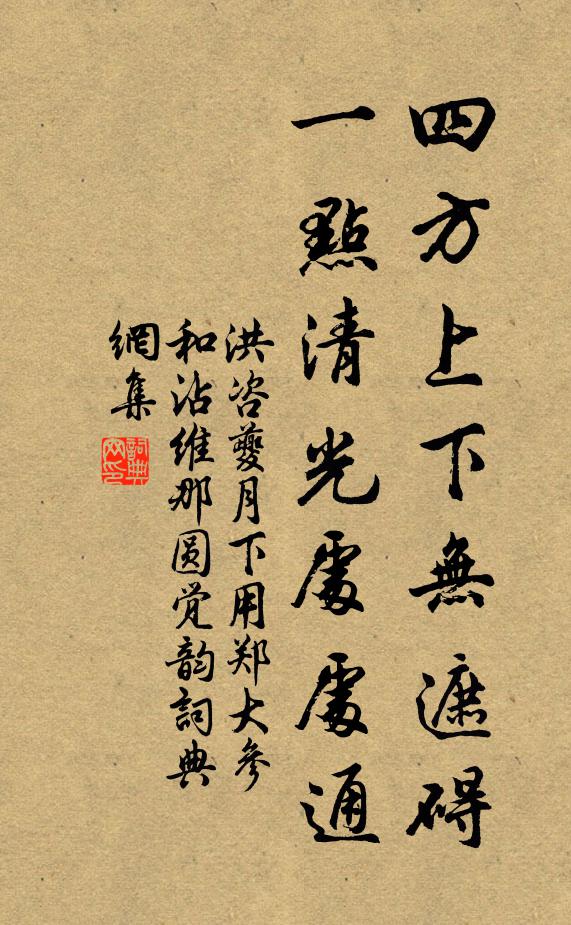 四方上下無遮碍
一點清光處處通
洪咨夔月下用郑大参
和沾维那圆觉韵詞典
網集
詞典网印